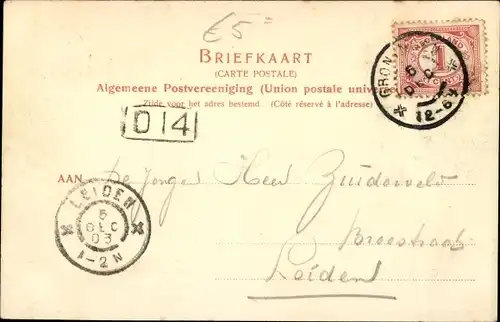 £5=
BRIEFKAART
(CARTE POSTALE)
Algemeene Postvereeniging (Union postale unive
Zijde voor het adres bestemd. (Côté réservé à l'adresse)
NEDERLAND
1
GRON
6 DEC
12-6V
D14
AAN De Jonge Heer Zuiderveld
Breestraat
Leiden
LEIDEN
5
DEC
03
1-2N